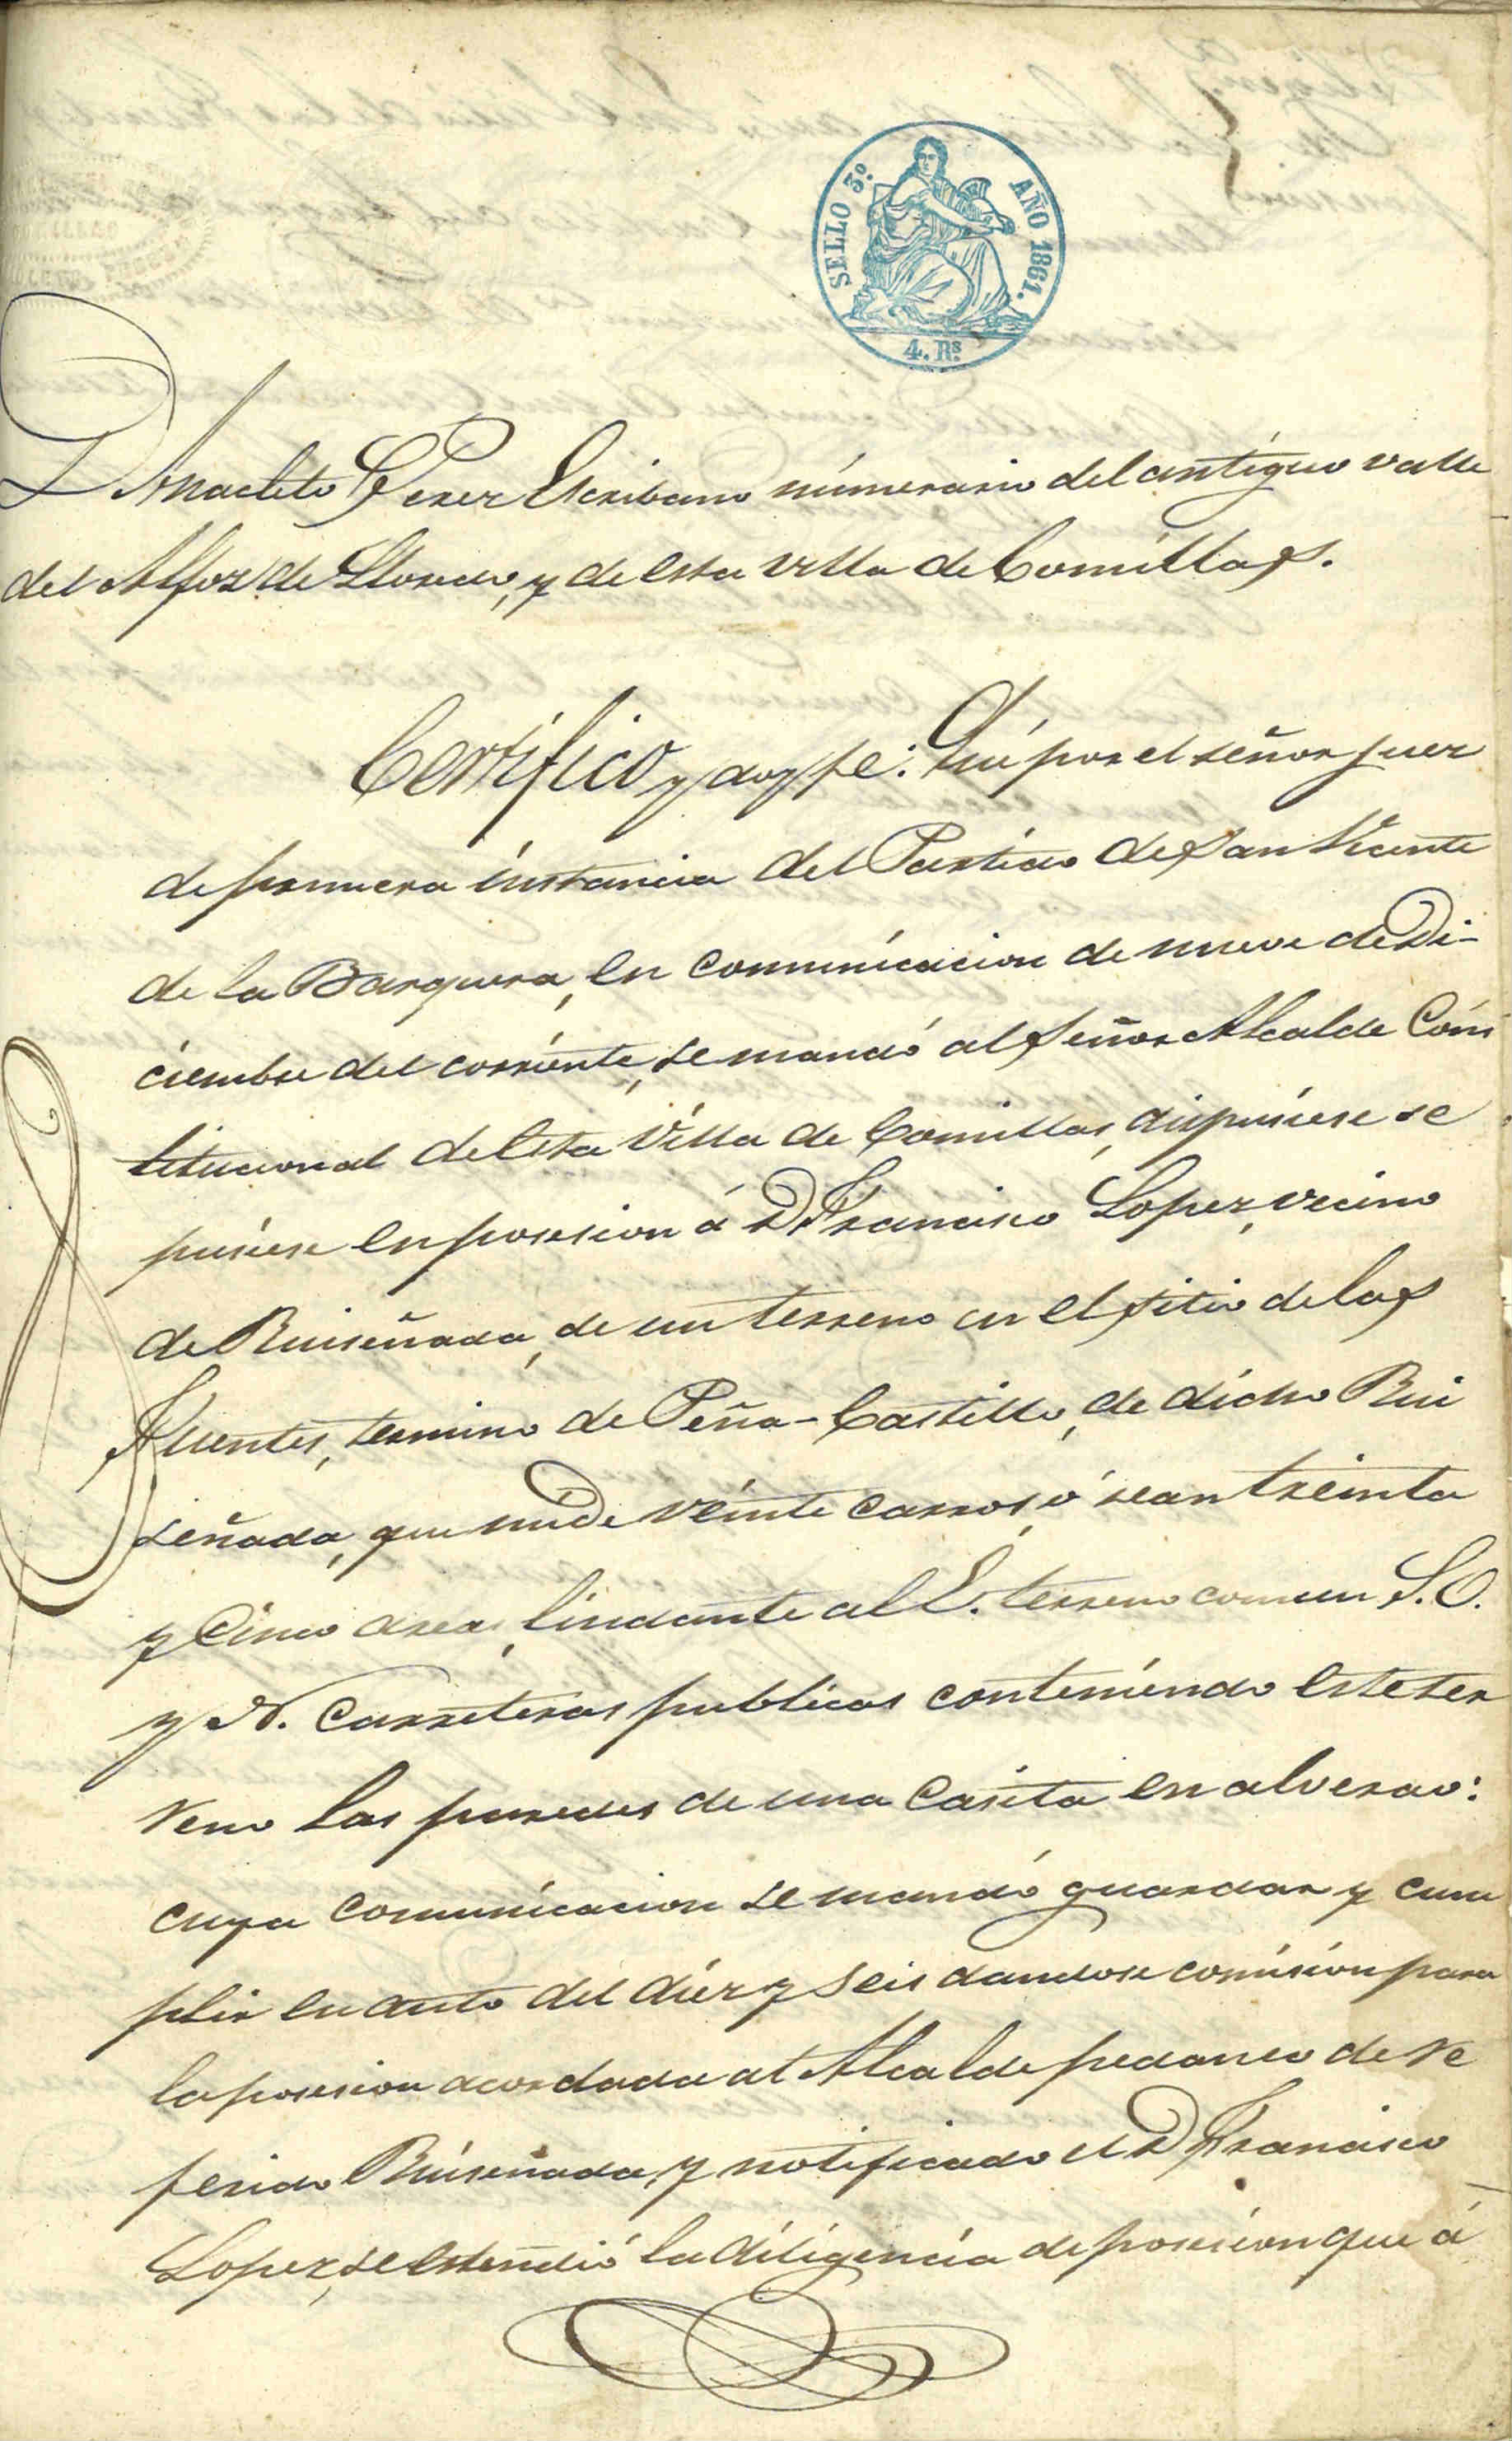 SELLO 3º. AÑO 1861.
4. Rs.
D Anacleto Perez Escribano númerario del antíguo valle
del Alfoz de Lloredo, y de esta villa de Comillas.
Certífico y doy fe: Que por el señor juez
de primera instancia del Partido de San Vicente
de la Barquera, en comunicacion de nueve de Di-
ciembre del corriente, se mandó al Señor Alcalde Cons
titucional de esta Villa de Comillas, dispusiese se
pusiese en posesion á D. Francisco Lopez, vecino
de Ruiseñada, de un terreno en el sitio de las
Fuentes, termino de Peña-Castillo, de dicho Rui
señada, que mide veinte carros, ó sean treinta
y cinco areas, lindante al E. terreno comun S. O.
y N. carreteras publicas conteniendo este ter
reno las paredes de una casita en alverao:
cuya comunicacion se mandó guardar y cum
plir en auto del diez y seis dandose comision para
la posesion acordada al Alcalde pedaneo de re
ferido Ruiseñada, y notificado el D Francisco
Lopez, se estendió la diligencia de posesion que á